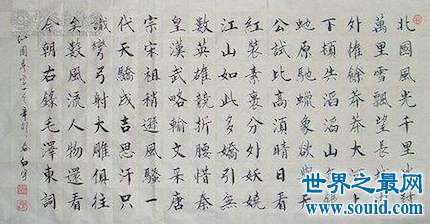 北國風光千里冰封
萬里雪飄望長城內
外惟餘莽莽大河上
下頓失滔滔山舞銀
蛇原馳蠟象欲與天
公試比高須晴日看
紅裝素裹分外妖嬈
江山如此多嬌引無
數英雄競折腰惜秦
皇漢武略輸文采唐
宗宋祖稍遜風騷一
代天驕成吉思汗只
識彎弓射大雕俱往
矣數風流人物還看
今朝右錄毛澤東詞
沁園春雪
世界之最网